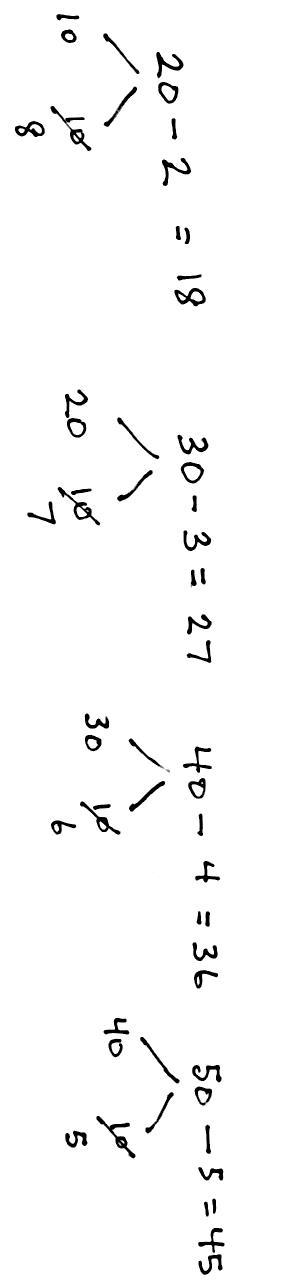 20 - 2 = 18
10 10
8
30 - 3 = 27
20 10
7
40 - 4 = 36
30 10
6
50 - 5 = 45
40 10
5